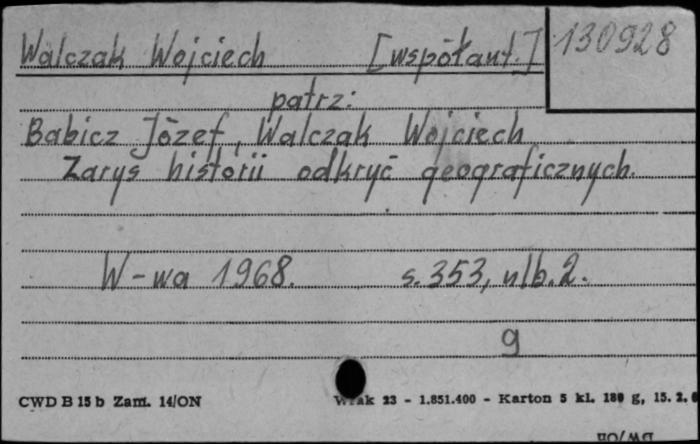 Walczak Wojciech [współaut.] 130928
patrz:
Babicz Józef, Walczak Wojciech
Zarys historii odkryć geograficznych.
W-wa 1968. s. 353, nlb. 2.
g
CWD B 15 b Zam. 14/ON Wzak 23 - 1.851.400 - Karton 5 kl. 180 g, 15. 2. 6